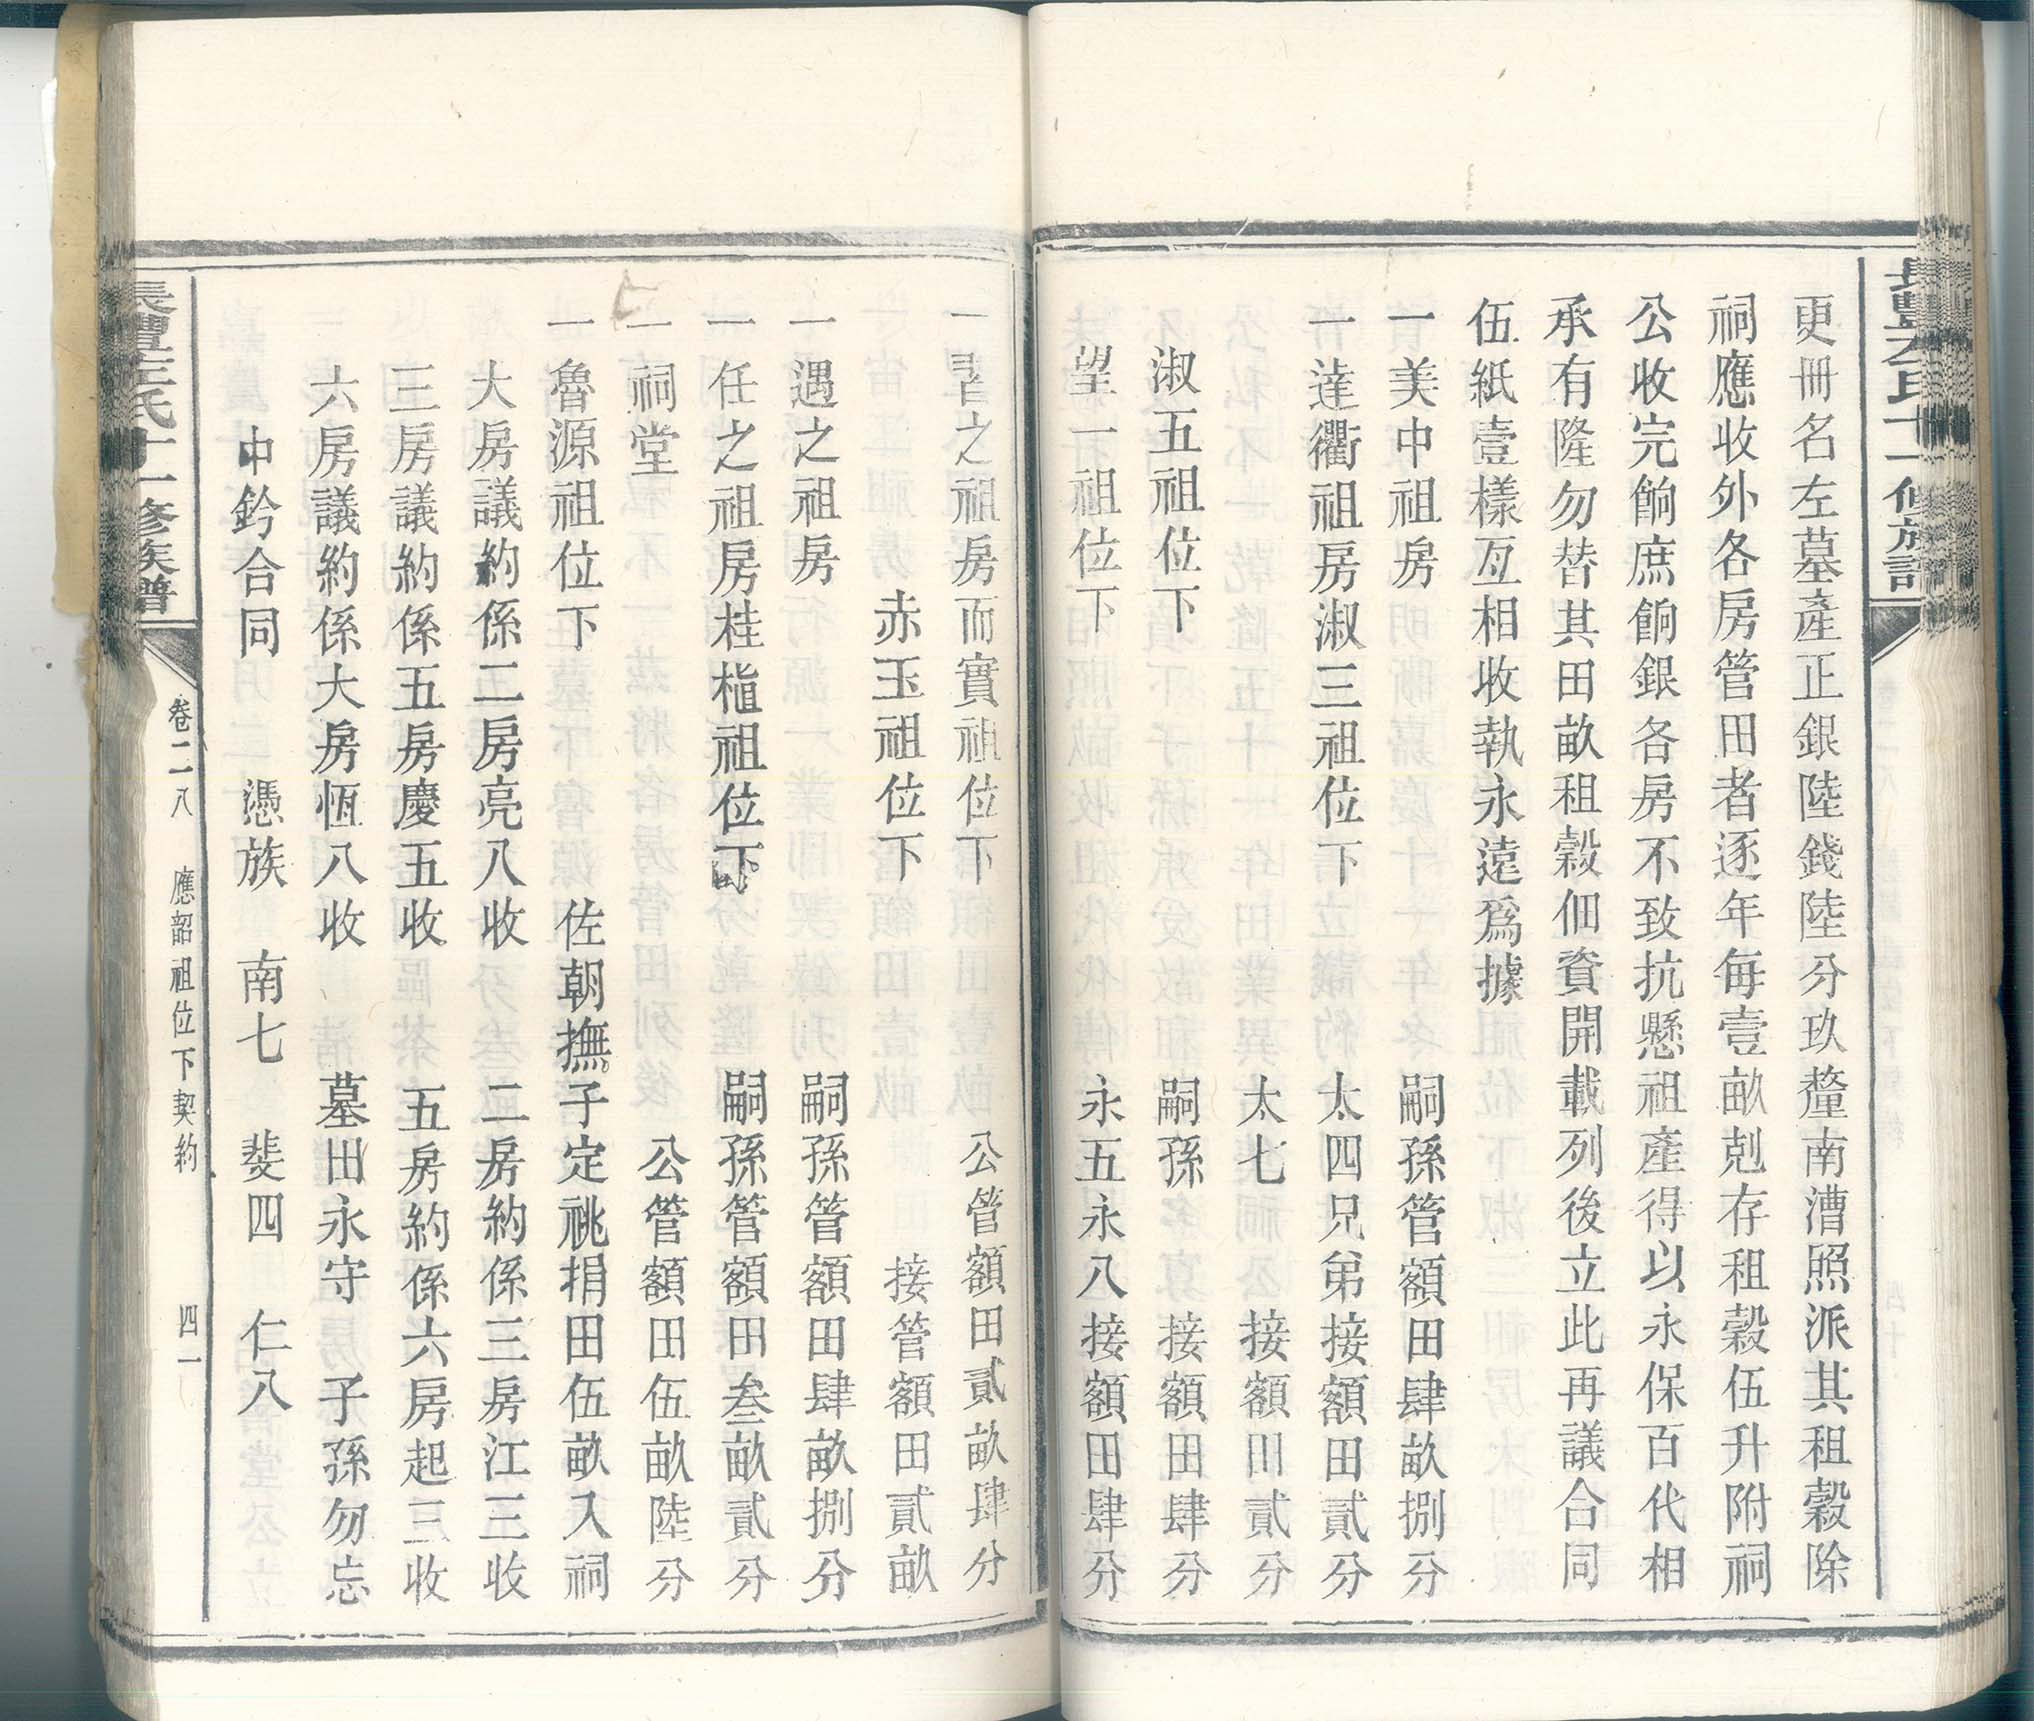 更冊名左墓產正銀陸錢陸分玖釐南漕照派其租穀除
祠應收外各房管田者逐年每壹畝剋存租穀伍升附祠
公收完餉庶餉銀各房不致抗懸祖產得以永保百代相
承有隆勿替其田畝租穀佃資開載列後立此再議合同
伍紙壹樣互相收執永遠爲據
一美中祖房 嗣孫管額田肆畝捌分
一達衢祖房淑三祖位下 太四兄弟接額田貳分
太七 接額田貳分
淑五祖位下 嗣孫 接額田肆分
望一祖位下 永五永八接額田肆分
之祖房而實祖位下 公管額田貳畝肆分
赤玉祖位下 接管額田貳畝
一遇之祖房 嗣孫管額田肆畝捌分
一任之祖房桂植祖位下 嗣孫管額田叁畝貳分
一祠堂 公管額田伍畝陸分
一魯源祖位下 佐朝撫子定祧捐田伍畝入祠
大房議約係二房亮八收 二房約係三房江三收
三房議約係五房慶五收 五房約係六房起三收
六房議約係大房恆八收 墓田永守 子孫勿忘
中鈐合同 憑族 南七 斐四 仁八
氏十一修族譜
卷二八 應韶祖位下契約 四一